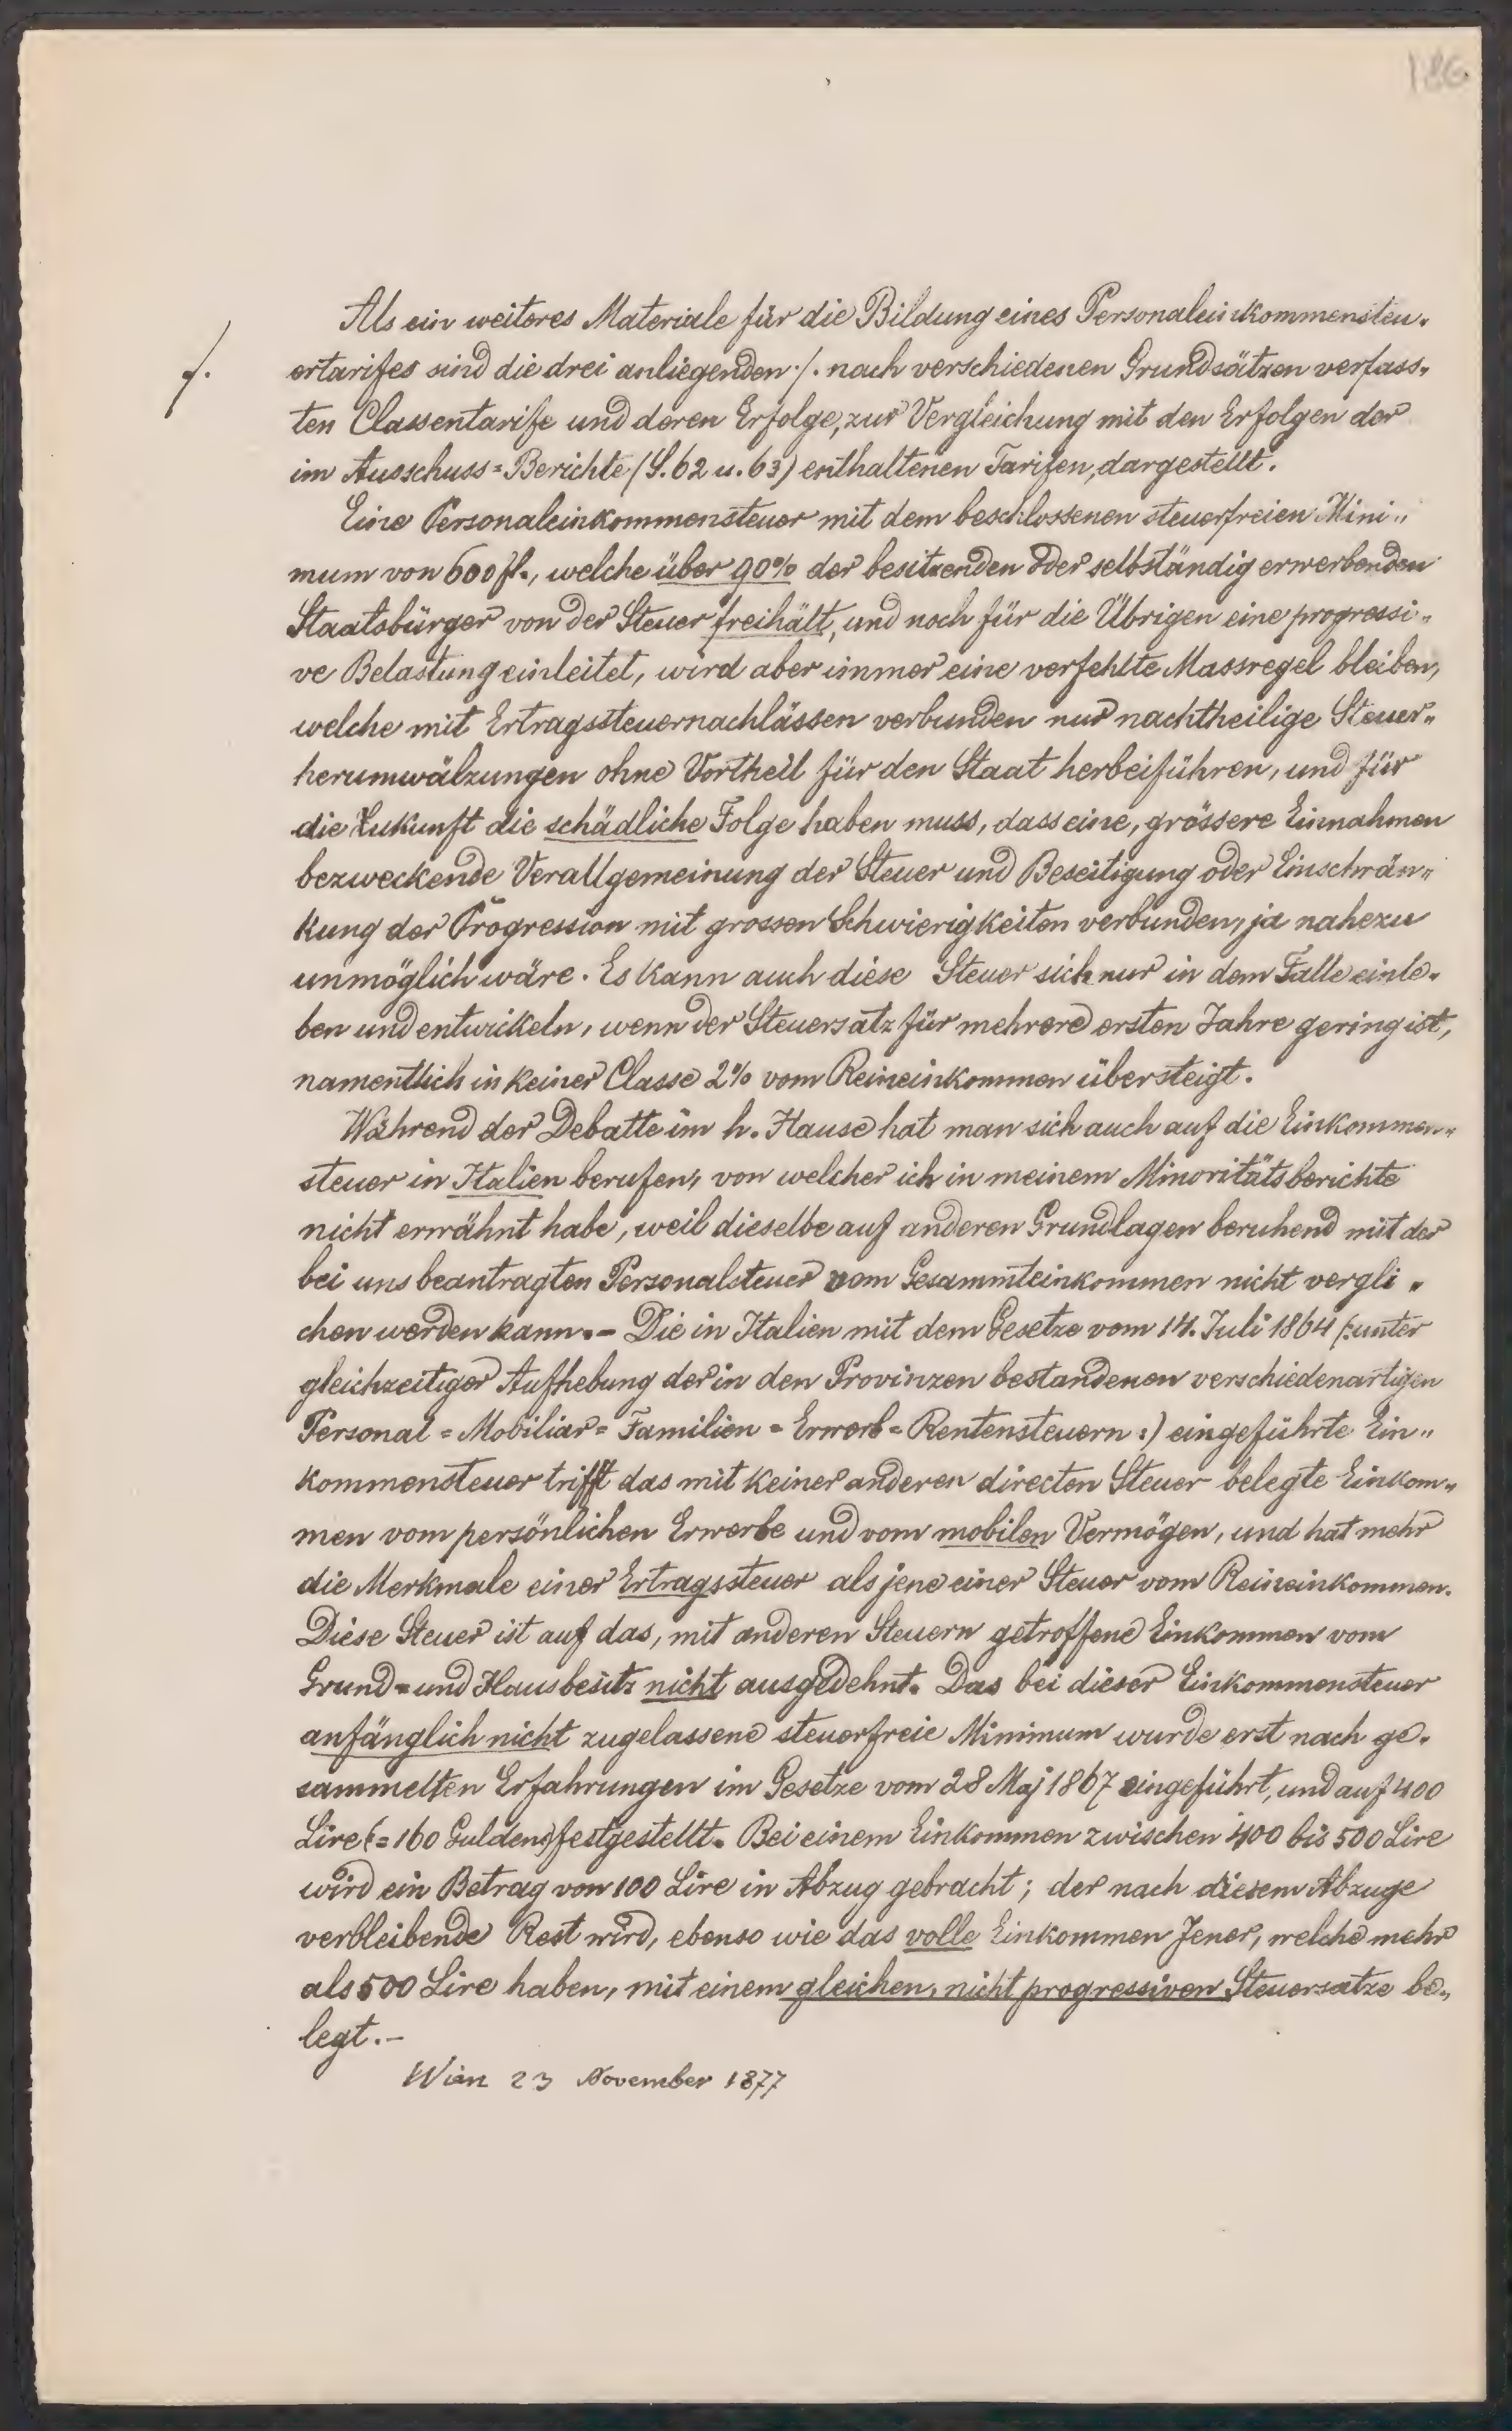 186.
Als ein weiteres Materiale für die Bildung eines Personaleinkommensteu-
ertarifes sind die drei anliegenden ./. nach verschiedenen Grundsätzen verfass-
./.
ten Classentarife und deren Erfolge, zur Vergleichung mit den Erfolgen der
im Ausschuss=Berichte (S. 62 u. 63) enthaltenen Tarifen, dargestellt.
Eine Personaleinkommensteuer mit dem beschlossenen steuerfreien Mini„
mum von 600 fl., welche über 90% der besitzenden oder selbständig erwerbenden
Staatsbürger von der Steuer freihält, und noch für die Übrigen eine progressi-
ve Belastung einleitet, wird aber immer eine verfehlte Massregel bleiben,
welche mit Ertragssteuernachlässen verbunden nur nachtheilige Steuer„
herumwälzungen ohne Vortheil für den Staat herbeiführen, und für
die Zukunft die schädliche Folge haben muss, dass eine, grössere Einnahmen
bezweckende Verallgemeinung der Steuer und Beseitigung oder Einschrän„
kung der Progression mit grossen Schwierigkeiten verbunden, ja nahezu
unmöglich wäre. Es kann auch diese Steuer sich nur in dem Falle einle-
ben und entwickeln, wenn der Steuersatz für mehrere ersten Jahre gering ist,
namentlich in keiner Classe 2% vom Reineinkommen übersteigt.
Während der Debatte im h. Hause hat man sich auch auf die Einkommen„
steuer in Italien berufen, von welcher ich in meinem Minoritätsberichte
nicht erwähnt habe, weil dieselbe auf anderen Grundlagen beruhend mit der
bei uns beantragten Personalsteuer vom Gesammteinkommen nicht vergli-
chen werden kann.– Die in Italien mit dem Gesetze vom 14. Juli 1864 (:unter
gleichzeitiger Aufhebung der in den Provinzen bestandenen verschiedenartigen
Personal=Mobiliar=Familien=Erwerb=Rentensteuern:) eingeführte Ein„
kommensteuer trifft das mit keiner anderen directen Steuer belegte Einkom„
men vom persönlichen Erwerbe und vom mobilen Vermögen, und hat mehr
die Merkmale einer Ertragssteuer als jene einer Steuer vom Reineinkommen.
Diese Steuer ist auf das, mit anderen Steuern getroffene Einkommen vom
Grund- und Hausbesitz nicht ausgedehnt. Das bei dieser Einkommensteuer
anfänglich nicht zugelassene steuerfreie Minimum wurde erst nach ge-
sammelten Erfahrungen im Gesetze vom 28 Maj 1867 eingeführt, und auf 400
Lire (=160 Gulden) festgestellt. Bei einem Einkommen zwischen 400 bis 500 Lire
wird ein Betrag von 100 Lire in Abzug gebracht; der nach diesem Abzuge
verbleibende Rest wird, ebenso wie das volle Einkommen Jener, welche mehr
als 500 Lire haben, mit einem gleichen, nicht progressiven Steuersatze be„
legt.–
Wien 23 November 1877